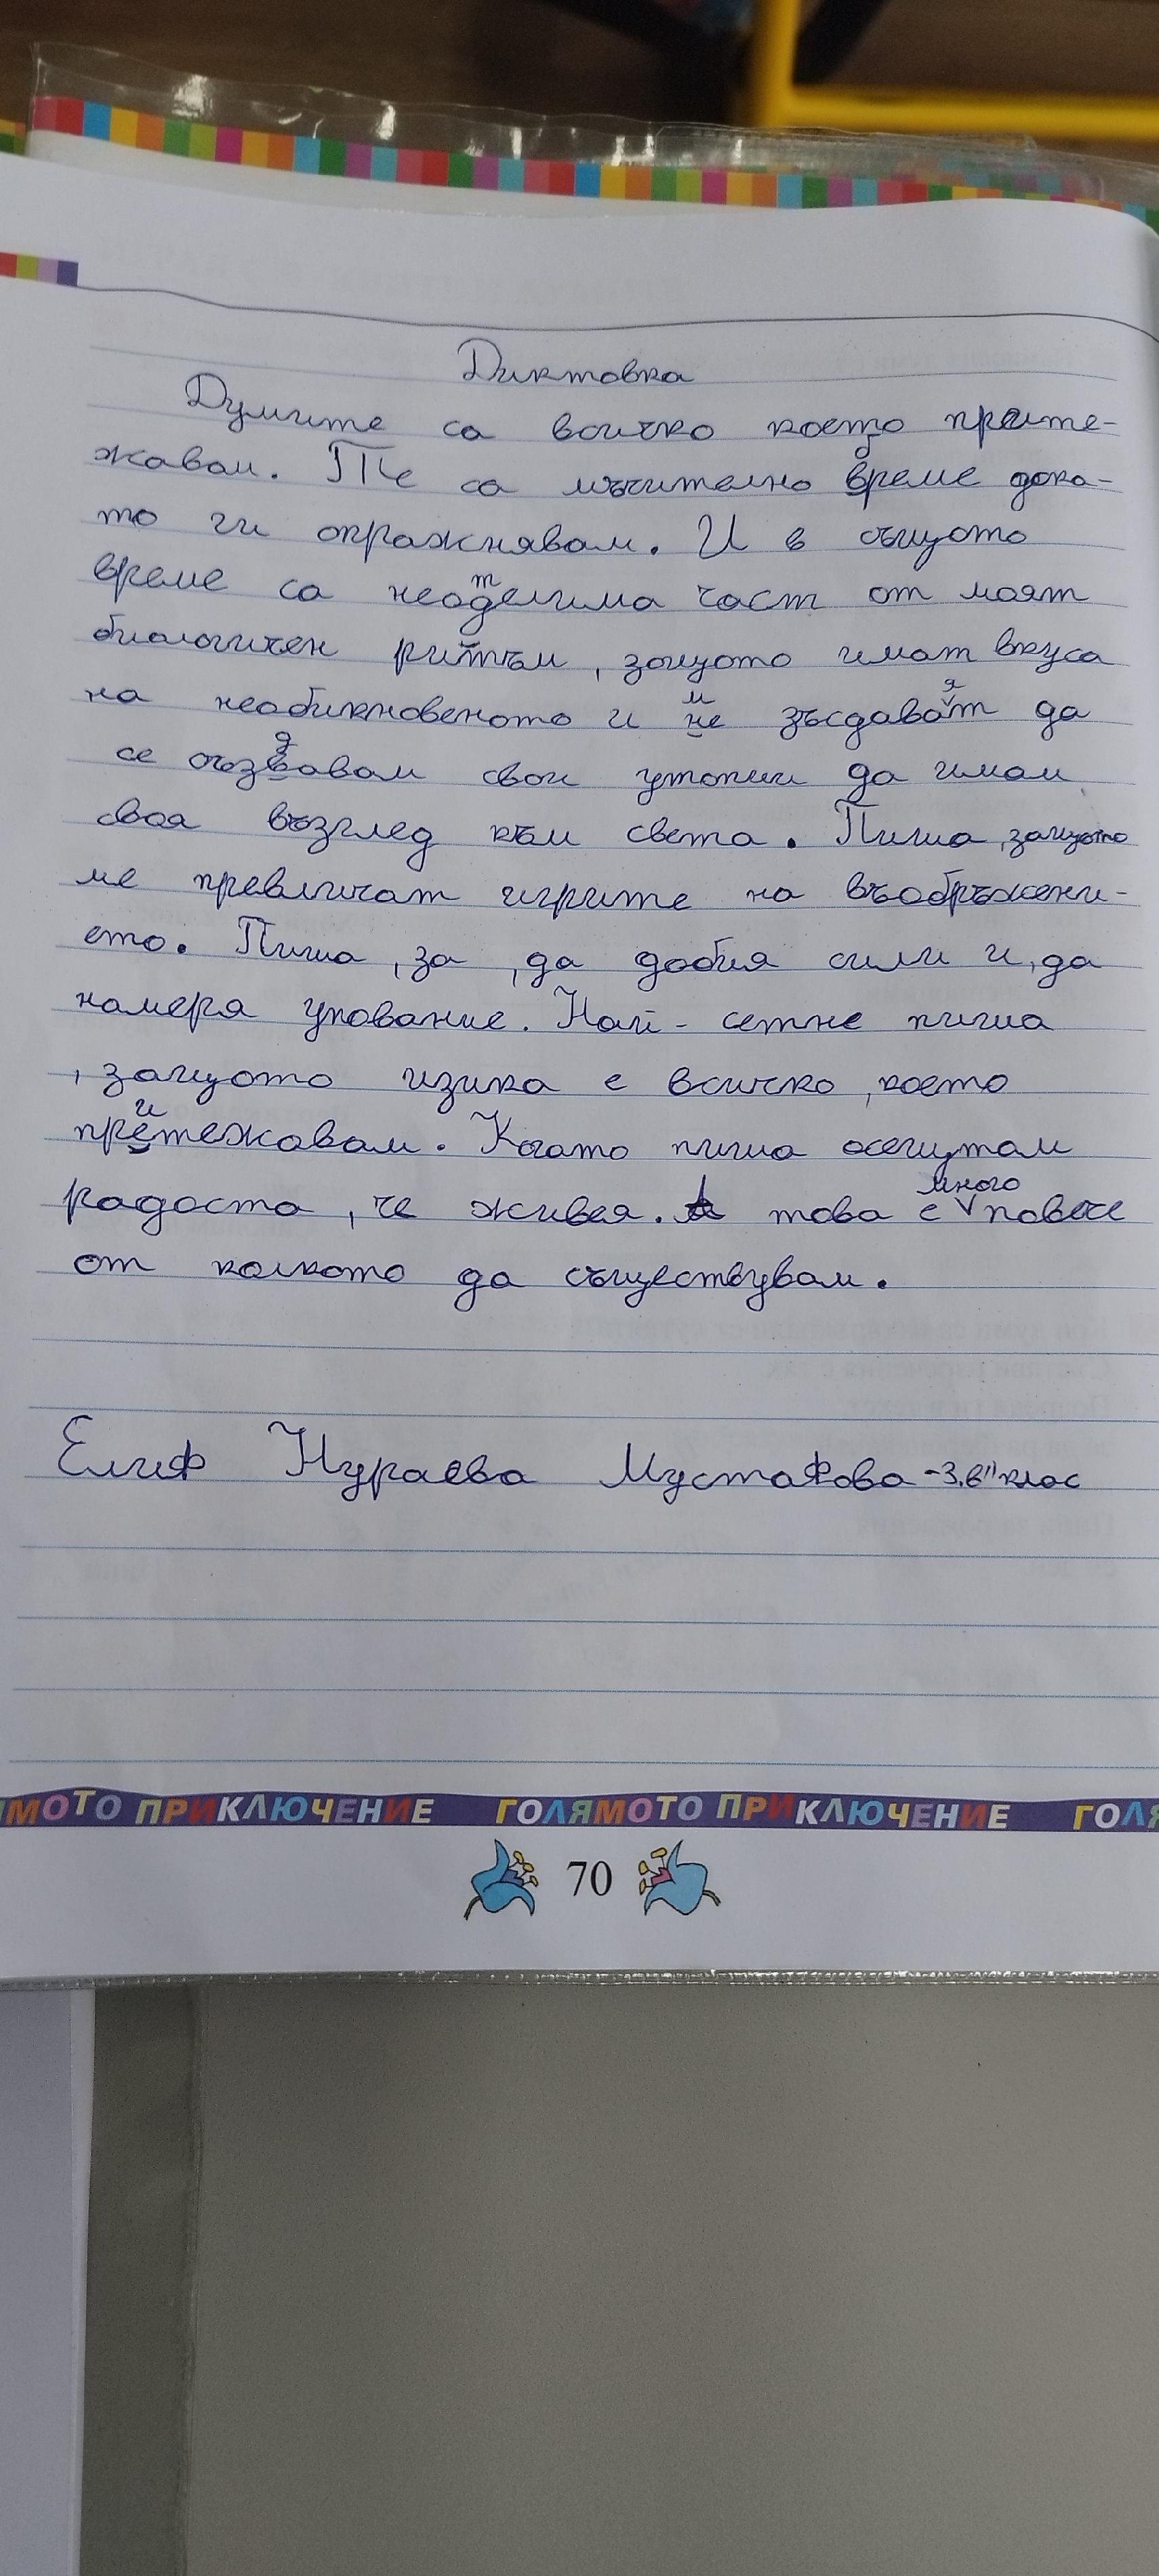 Диктовка
Думите са всичко което прите-
жавам. Те са мъчително бреме дока-
то ги опражнявам. И в същото
време са неотделима част от моят
биологичен ритъм, защото имат вкуса
на необикновеното и ми зъсдават да
се създавам свои утопии да имам
своя възглед към света. Пиша, защото
ме превличат игрите на въобръжени-
ето. Пиша, за, да добия сили и, да
намеря упование. Най-сетне пиша
, защото изика е всичко, което
притежавам. Когато пиша осещтам
радоста, че живея. А това е много повече
от колкото да съществувам.
Елиф Нураева Мустафова - 3."в" клас
МОТО ПРИКЛЮЧЕНИЕ ГОЛЯМОТО ПРИКЛЮЧЕНИЕ ГОЛЯ
70